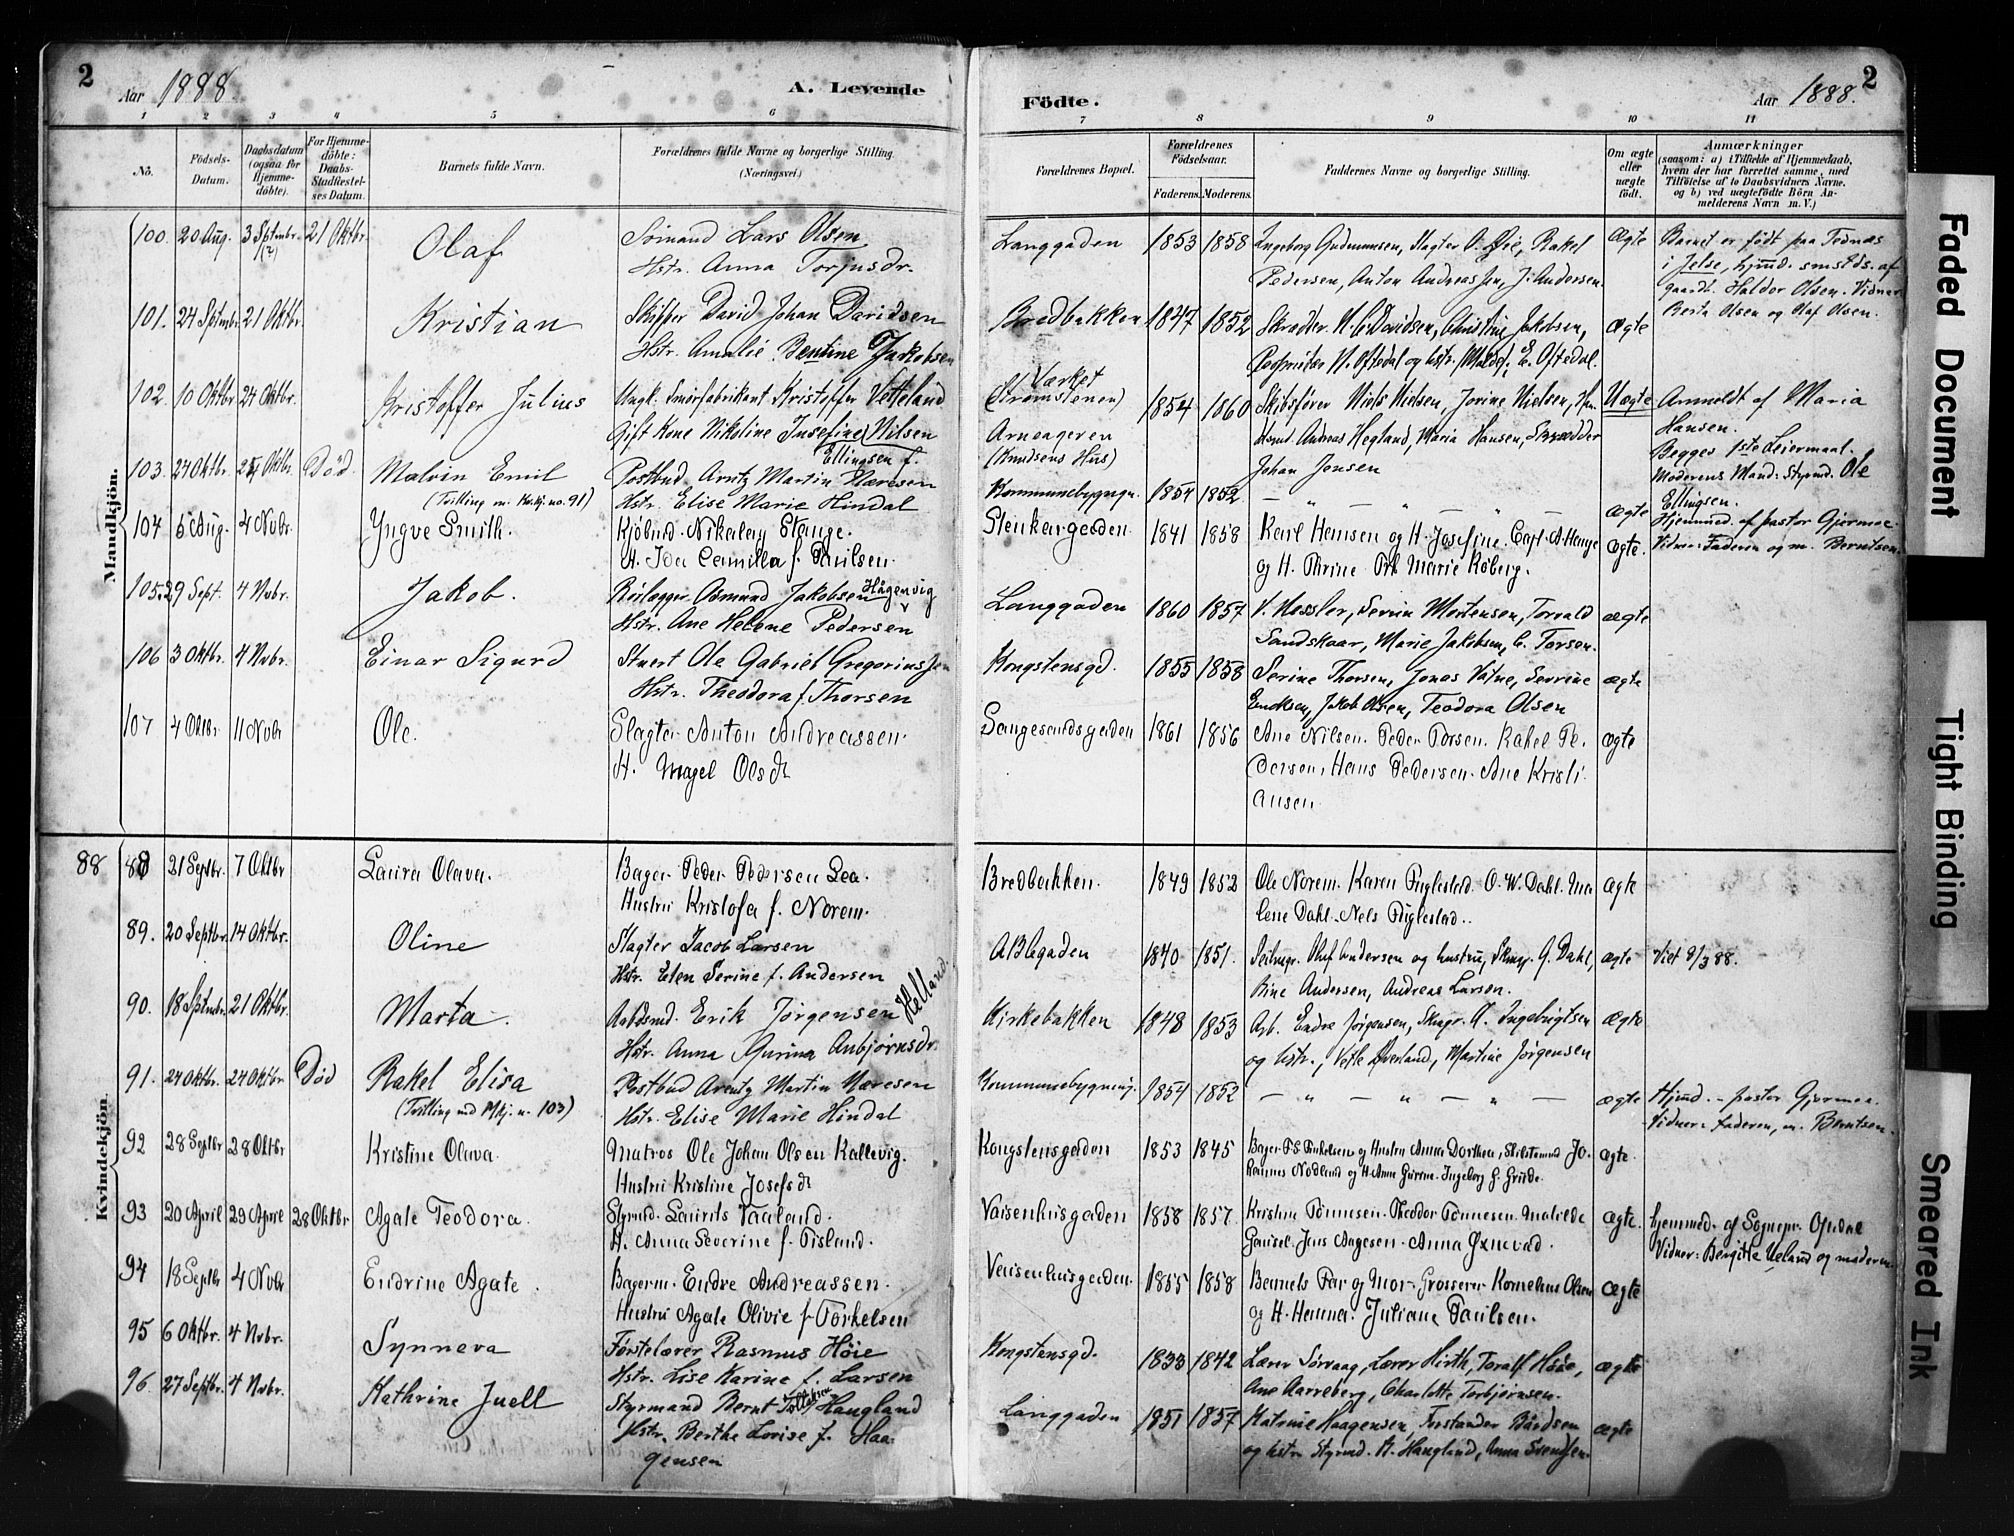 2
Aar 1888
A. Levende
Födte.
Aar 1888.
2
1 2 3 4 5 6 7 8 9 10 11
No.
Födsels-Datum.
Daabsdatum (ogsaa for Hjemmedöbte).
For Hjemmedöbte: Daabs-Stadfæstelses Datum.
Barnets fulde Navn.
Forældrenes fulde Navne og borgerlige Stilling. (Næringsvei.)
Forældrenes Bopæl.
Forældrenes Födselsaar.
Faderens. Moderens.
Faddernes Navne og borgerlige Stilling.
Om ægte eller uægte födt.
Anmærkninger
(saasom: a) i Tilfælde af Hjemmedaab, hvem der har forrettet samme, med Tilföielse af to Daabsvidners Navne, og b) ved uægtefödte Börn Anmelderens Navn m. V.)
Mandkjön.
100. 20 Aug. 3 Septmbr. (?) 21 Oktbr. Olaf
Sömand Lars Olsen
Hstr. Anna Torjusdr.
Langgaden 1853 1858
Ingeborg Gudmundsen, Slagter O. Öie, Rakel
Pedersen, Anton Andreassen, J. Andersen.
Ægte
Barnet er født paa
i Jelse, hjmd. smstds. af
gaardb. Haldor Olsen. Vidner
Berta Olsen og Olaf Olsen.
101. 24 Septmbr. 21 Oktbr. Kristian
Skipper David Johan Davidsen
Hstr. Amalie Bentine Jakobsen
Bredbakken 1847 1852
Skrædder N. C. Davidsen, Christine Jakobsen,
Proprietær N. Oftedal og hstr., E. Oftedal.
Ægte
102. 10 Oktbr. 24 Oktbr. Kristoffer Julius
Ungk. Smörfabrikant Kristoffer Vetteland
Gift Kone Nikoline Josefine Nilsen
Ellingsen f.
Varket
(Strømstenen)
Arneageren
(Knudsens Hus)
1854 1860
Skibsfører Niels Nielsen, Jorine Nielsen,
Andreas Hegland, Maria Hansen, Skrædder
Johan Jensen
Uægte
Anmeldt af Maria
Hansen.
Begges 1ste Leiermaal.
Moderens Mand: Styrmd. Ole
Ellingsen.
103. 24 Oktbr. 24 Oktbr. Död Malvin Emil
(Tvilling m. Kvkj. no. 91)
Postbud Arntz Martin Næresen
Hstr. Elise Marie Hindal
Kommunebygngn. 1854 1852. — „ — „ — „ —
ægte
Hjemmed. af pastor Gjermoe
Vidner: Faderen og m. Berntsen.
104 5 Aug. 4 Novbr. Yngve Smith.
Kjöbmd. Nikolay Stange.
H. Ida Camilla f. Paulsen.
Stenkargaden. 1841 1858
Karl Hansen og H. Josefine. Capt. A. Hauge
og H. Thrine Frk Marie Köberg.
ægte.
105. 29 Sept. 4 Nvbr. Jakob.
Reislægger Osmund Jakobsen Hågenvig
Hstr. Ane Helene Pedersen
Langgaden 1860 1857
V. Hessler, Sevrin Mortensen, Torvald
Sandskaar, Marie Jakobsen, C. Torsen.
ægte
106 3 Oktbr. 4 Nvbr. Einar Sigurd
Stuert Ole Gabriel Gregoriussen
Hstr. Theodora f. Thorsen
Kongstensgd. 1855 1858
Serine Thorsen, Jonas Vatne, Sevrine
Eriksen, Jakob Olsen, Teodora Olsen
ægte
107 4 Oktbr. 11 Novbr Ole.
Slagter Anton Andreassen.
H. Magel Olsdt
Langesundsgaden 1861 1856
Ane Nilsen. Peder Torsen. Rakel Pe-
dersen, Hans Pedersen. Ane Kristi-
ansen.
ægte
Kvindekjön.
88
88 21 Septbr. 7 Oktbr Laura Olava.
Bager Peder Pedersen Lea.
Hustru Kristofa f. Norem.
Bredbakken. 1849 1852
Ole Norem. Karen Fuglestad. O. W. Dahl. Ma-
lene Dahl. Nels Fuglestad.
ægte
89. 20 Septbr. 14 Oktbr. Oline
Slagter Jacob Larsen
Hstr. Elen Serine f. Andersen
Ablegaden 1840 1851.
Olaf Andersen og hustru, Skmgr. G. Dahl,
Rine Andersen, Andreas Larsen.
ægte
Viet 8/3 88.
90. 18 Sptmbr. 21 Oktbr. Marta.
Erik Jørgensen Helland.
Hstr. Anna Gurina Anbjørnsdr.
Kirkebakken 1848 1853
Arb. Endre Jørgensen, Skmgr. A. Ingebrigtsen
og hstr., Vetle Øverland, Martine Jørgensen
Ægte
91. 24 Oktbr. 24 Oktbr Död Rakel Elisa
(Tvilling med Mkj. n. 103)
Postbud Arentz Martin Næresen
Hstr. Elise Marie Hindal
Kommunebygning. 1854 1852 — „ — „ — „ —
ægte
Hjmd. - pastor Gjermoe.
Vidner: faderen, m. Berntsen.
92 28 Septbr 28 Oktbr Kristine Olava.
Matros Ole Johan Olsen Kallevig.
Hustru Kristine Josefsdt
Kongstensgaden 1853 1845
Bager T. S. Torkelsen og Hustru Anna Dorthea, Skibstømmd Jo-
hannes Nödland og H. Anna Gurine. Ingeborg G. Grude.
ægte.
93 20 April 29 April 28 Oktbr Agate Teodora.
Styrmd. Laurits Taaland.
H. Anna Severine f. Tisland.
Vaisenhusgaden 1858 1857
Kristine Tönnesen. Theodor Tönnesen. Matilde
Gausel. Jens Aagesen. Anna Oxnevad.
ægte.
hjemmed. af Sognepr. Opdal
Vidner: Bergitte Ueland og moderen
94 18 Septbr 4 Novbr Endrine Agate.
Bagerm. Endre Andreassen.
Hustru Agate Olivie f. Torkelsen
Vaisenhusgaden. 1855 1858
Barnets Far og Mor. Grosserer Kornelius Olsen
og H. Hanna. Juliane Paulsen.
ægte
95 6 Oktbr. 4 Nvbr. Synneva
Førstelærer Rasmus Höie
Hstr. Lise Karine f. Larsen
Kongstensgd. 1833 1842
Lærer Sörvaag, Lærer Hirth, Toralf Höie,
Ane Aarreberg, Charlotte Torbjørnsen.
ægte
96. 27 Septbr. 4 Nvbr. Kathrine Juell
Styrmand Bernt Tollaksen Haugland
Hstr. Berthe Lovise f. Haa-
gensen
Langgaden 1851 1857
Katrine Haagensen, Forstander Bårdsen
og hstr. Styrmd. B. Haugland, Anna Svendsen.
ægte
Faded Document
Tight Binding
Smeared Ink